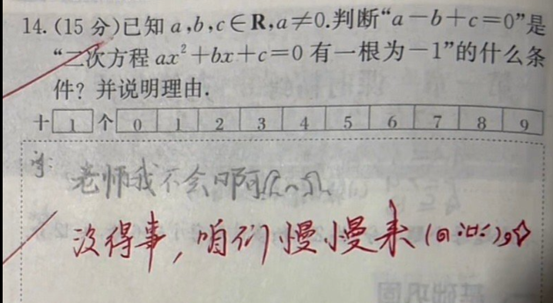 14.(15 分)已知 a,b,c∈R,a≠0.判断“a−b+c=0”是
“二次方程 ax²+bx+c=0 有一根为−1”的什么条
件？并说明理由.
十 1 个 0 1 2 3 4 5 6 7 8 9
老师我不会啊
没得事，咱们慢慢来